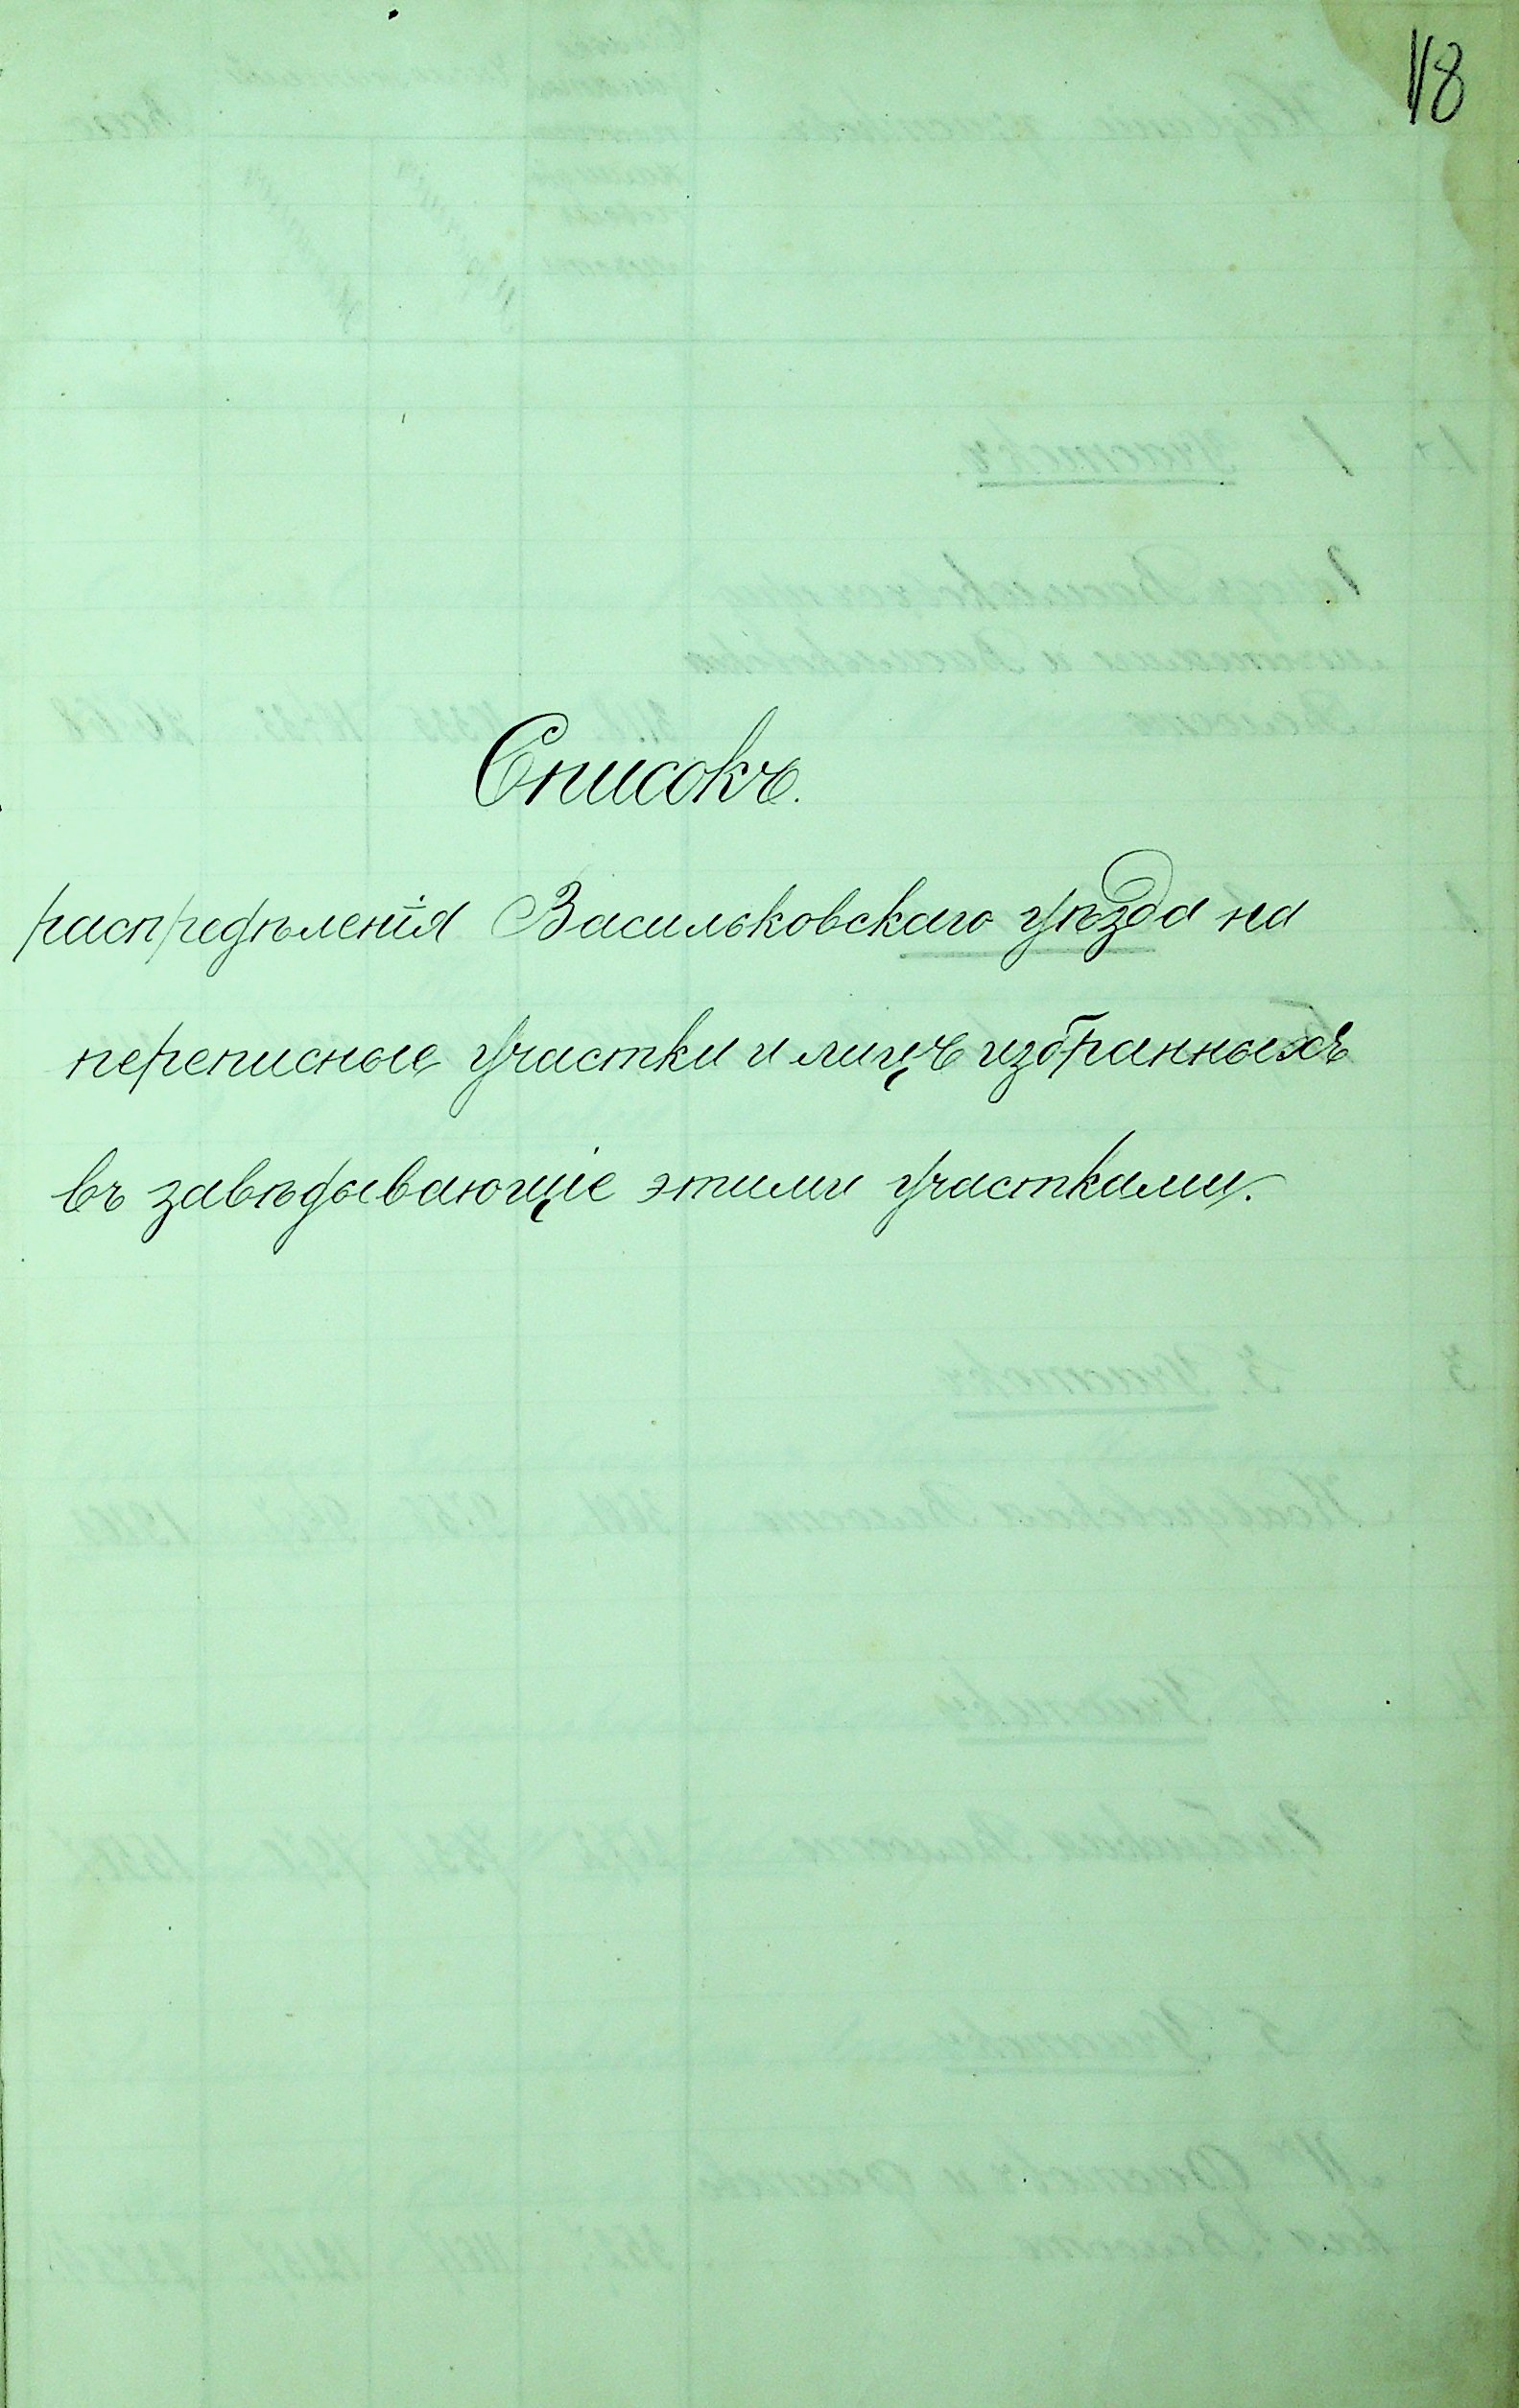 118
Списокъ.
распредѣленія Васильковскаго уѣзда на
переписные участки и лицъ избранныхъ
въ завѣдывающіе этими участками.